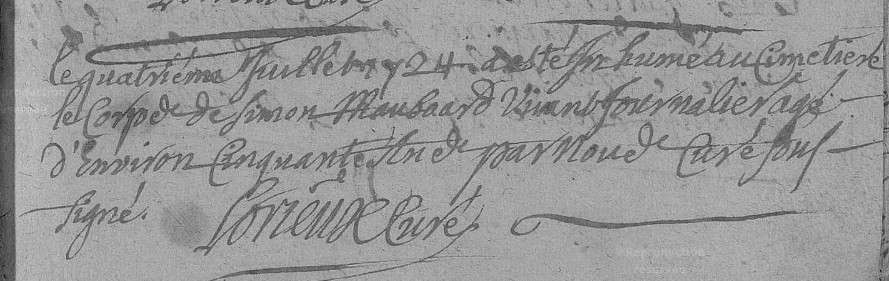 le quatriéme Juillet 1724 a esté Jnhumé au Cimetiere
le Corps de Simon Maubaard Vivant Journalier agé
D'Environ Cinquante Ans par Nous Curé Sous
Signé.
Lorieux Curé